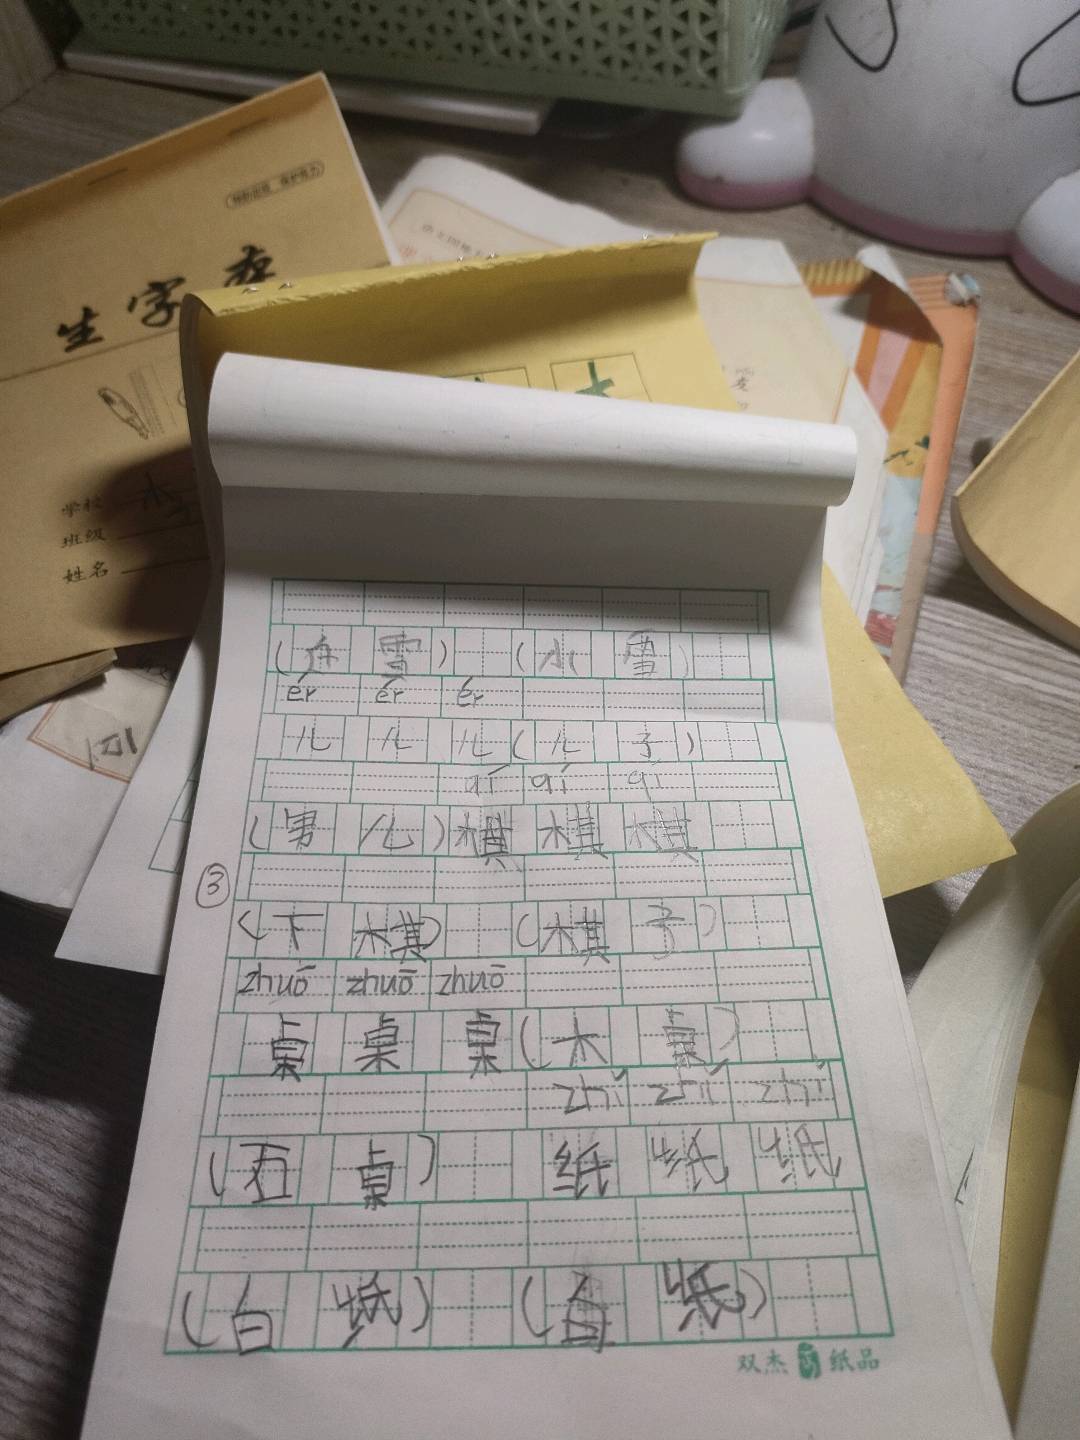 生字本
学校
班级
姓名
( 雪) (冰 雪)
ér ér ér
儿 儿 儿 (儿 子)
qí qí qí
(男 儿) 棋 棋 棋
③
(下 棋) (棋 子)
zhuō zhuō zhuō
桌 桌 桌 (木 桌)
zhǐ zhǐ zhǐ
(石 桌) 纸 纸 纸
(白 纸) ( 纸)
双杰 纸品